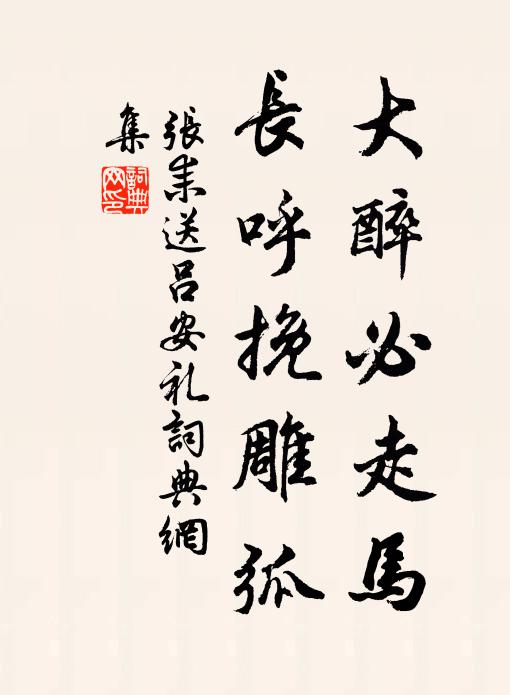 大醉必走馬
長呼挽雕弧
張耒送呂安礼詞典網
集
詞典
网印